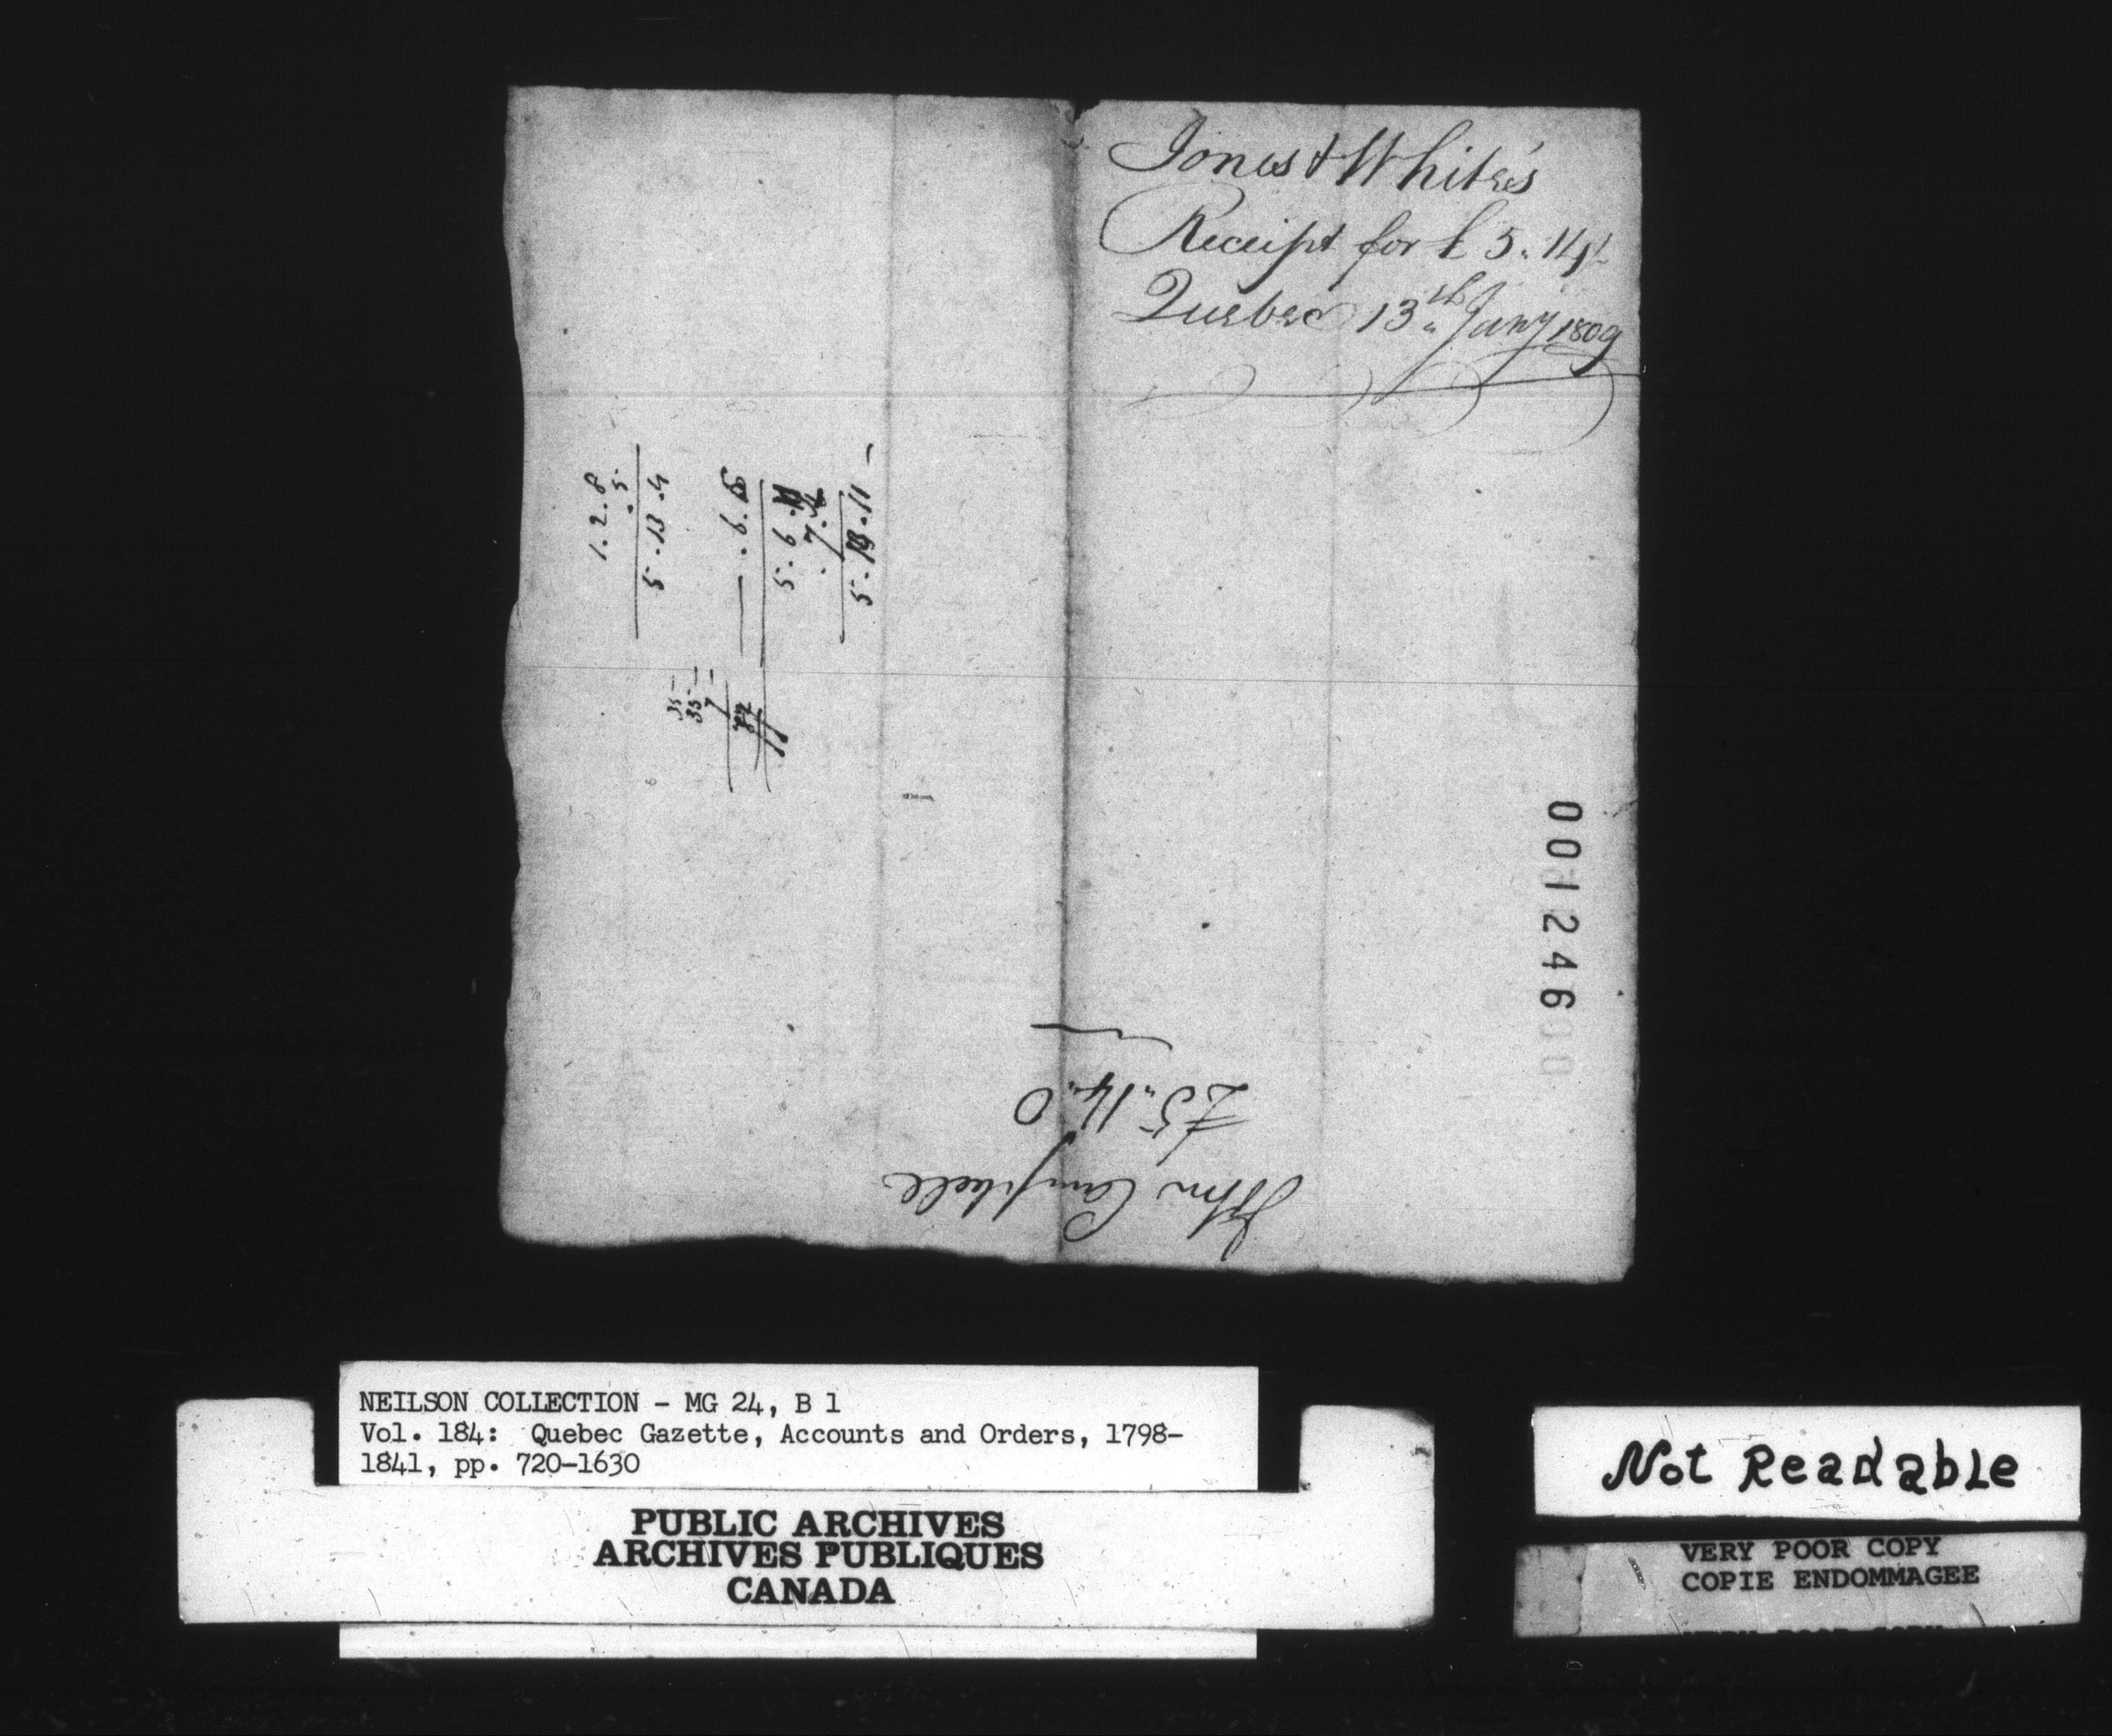 Jones & White's
Receipt for £ 5. 14/-
Quebec 13th Jany 1809
1. 2. 8
5
5. 13. 4
. 6. 
5. 6. 
. 7. 
5. 19. 11
35 -
35 -
7 -
001246
£5. 14. 0
John Campbell
NEILSON COLLECTION - MG 24, B 1
Vol. 184: Quebec Gazette, Accounts and Orders, 1798-
1841, pp. 720-1630
PUBLIC ARCHIVES
ARCHIVES PUBLIQUES
CANADA
Not Readable
VERY POOR COPY
COPIE ENDOMMAGEE